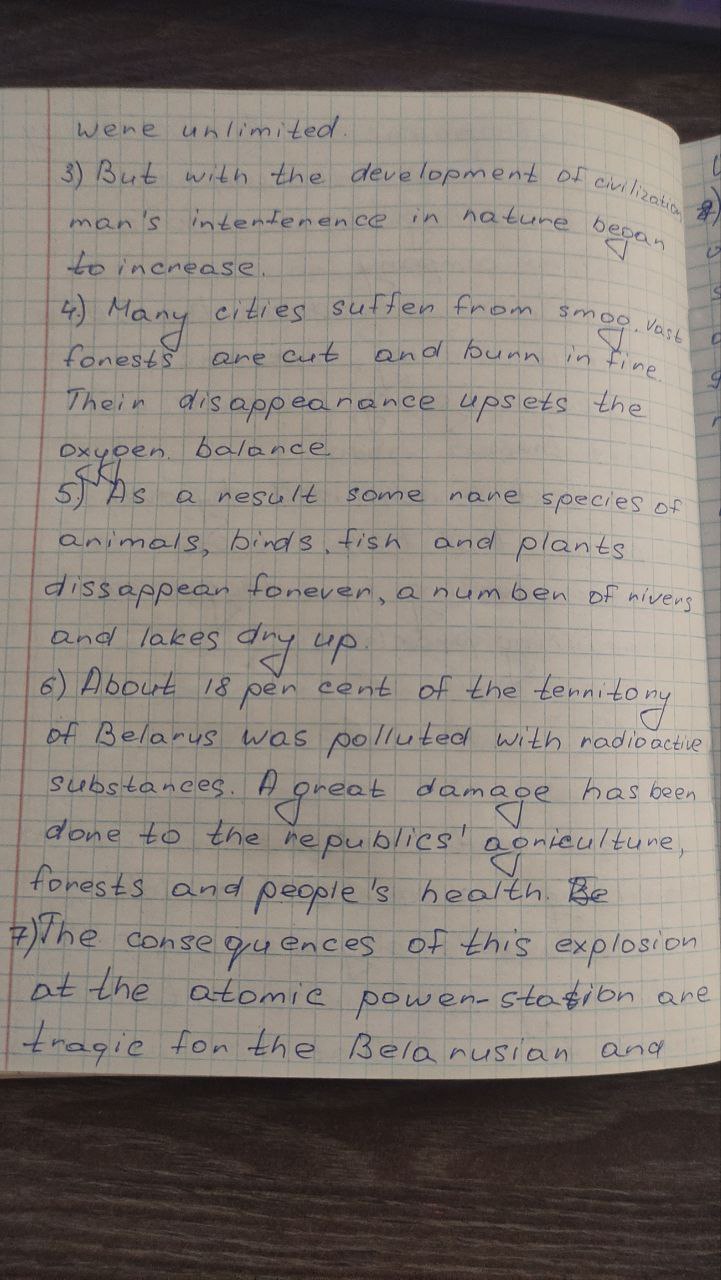 were unlimited.
3) But with the development of civilization
man's interference in nature began
to increase.
4) Many cities suffer from smog. Vast
forests are cut and burn in fire.
Their disappearance upsets the
oxygen balance
5) As a result some rare species of
animals, birds, fish and plants
dissappear forever, a number of rivers
and lakes dry up.
6) About 18 per cent of the territory
of Belarus was polluted with radioactive
substances. A great damage has been
done to the republics' agriculture,
forests and people's health. Be
7) The consequences of this explosion
at the atomic power-station are
tragic for the Belarusian and